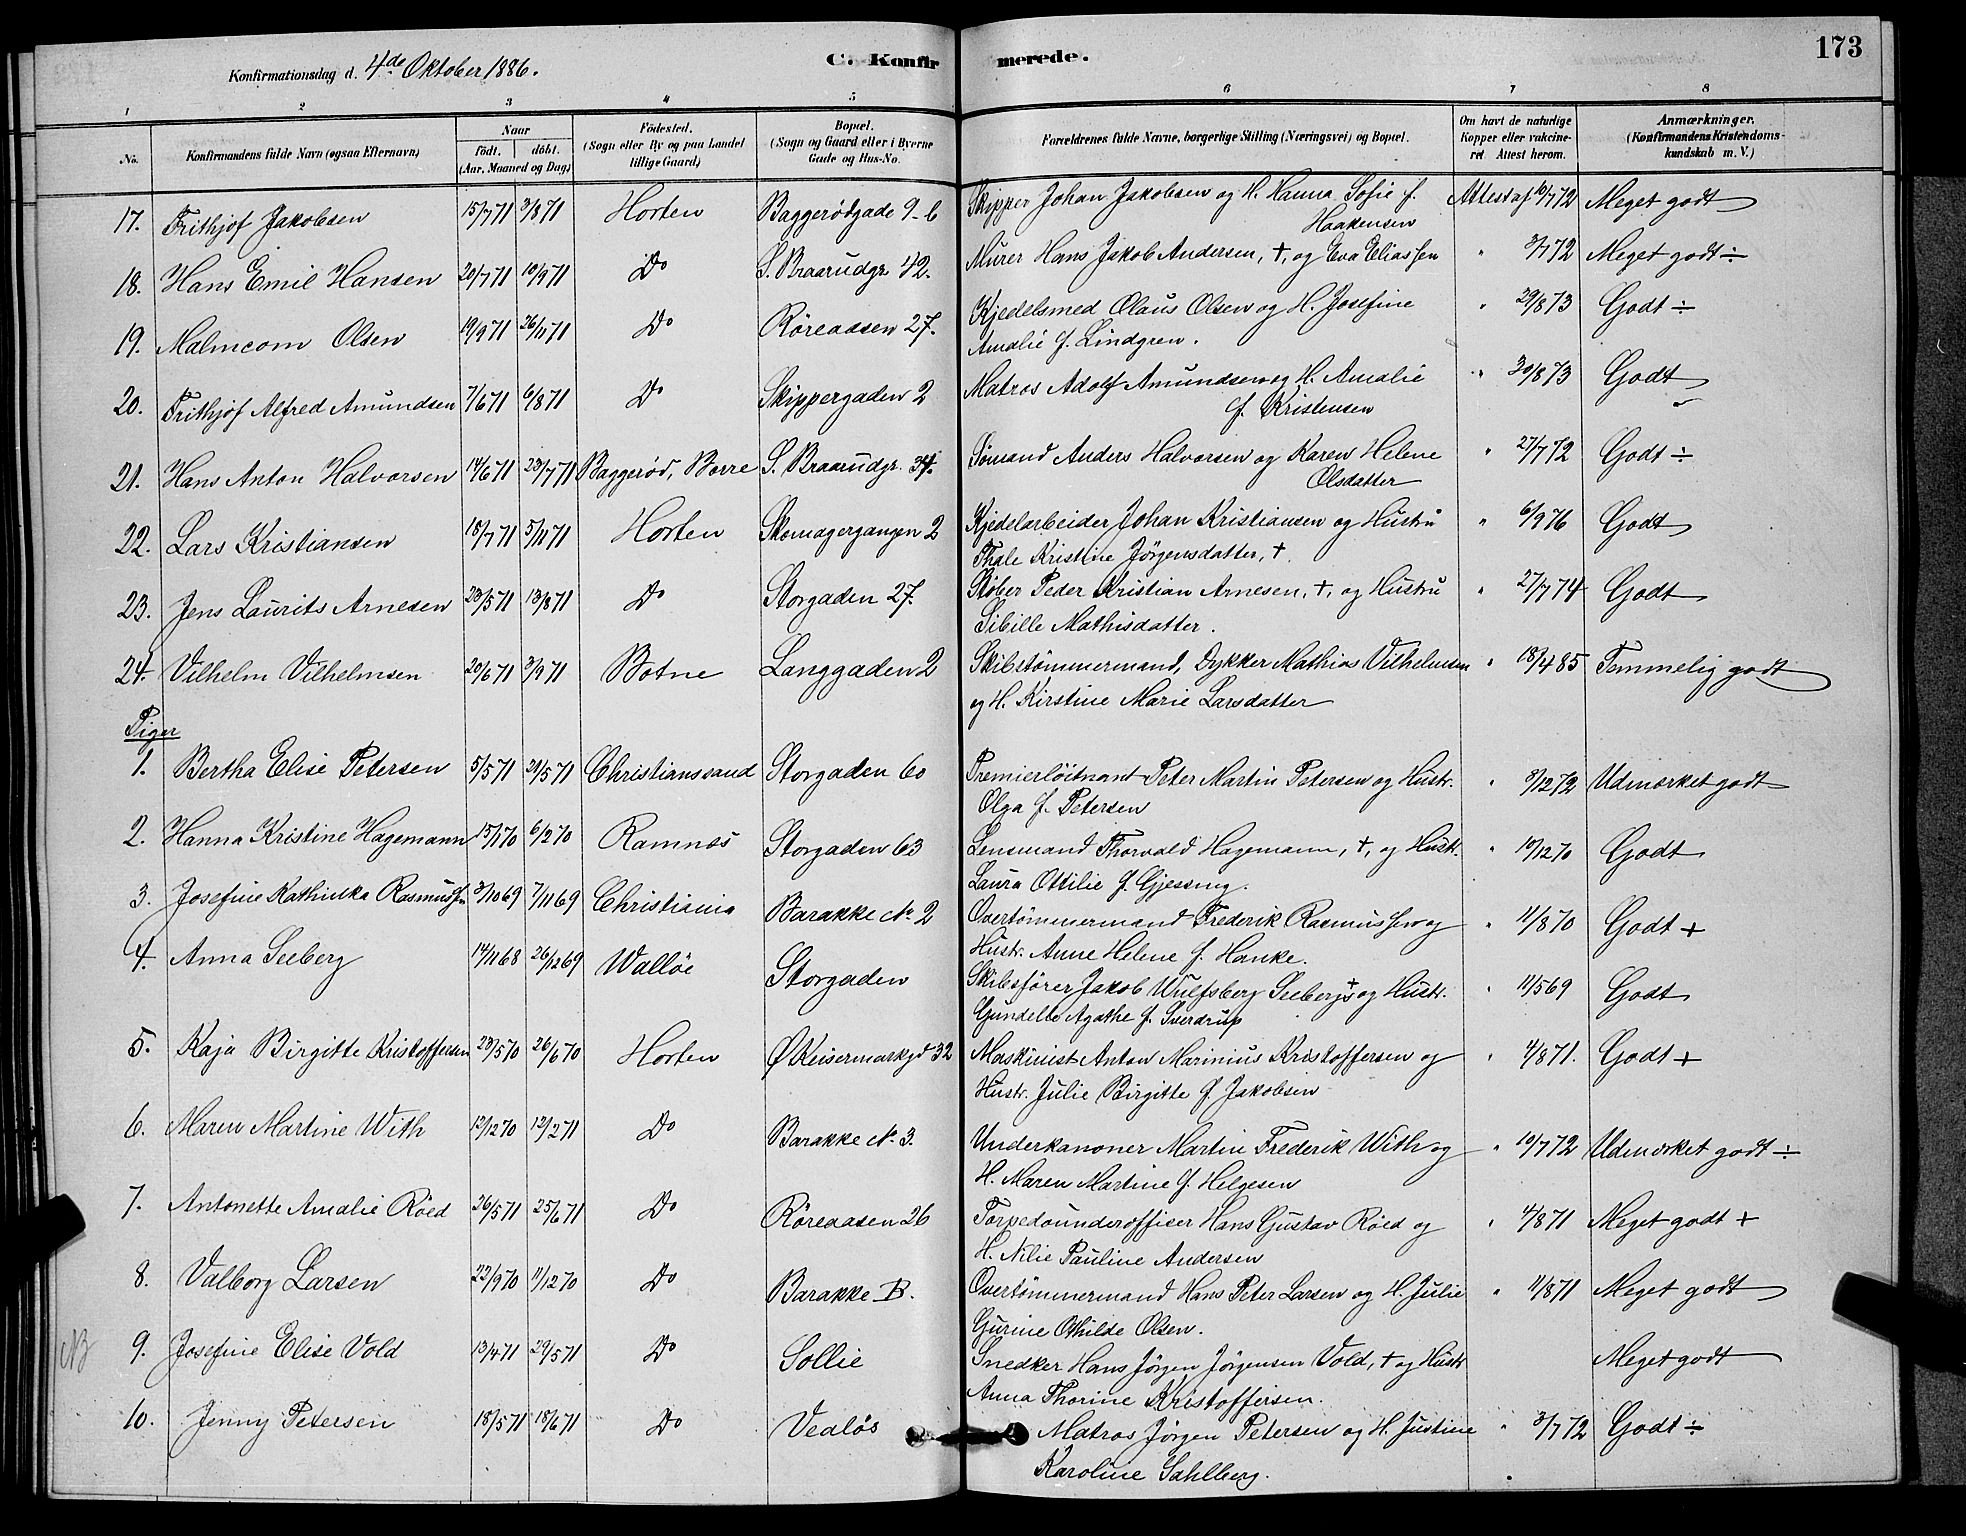 173
Konfirmationsdag d. 4de Oktober 1886.
C. Konfirmerede.
1 2 3 4 5 6 7 8
No. Konfirmandens fulde Navn (ogsaa Efternavn) Naar födt. döbt. (Aar, Maaned og Dag) Födested. (Sogn eller By og paa Landet tillige Gaard) Bopæl. (Sogn og Gaard eller i Byerne Gade og Hus-No. Forældrenes fulde Navne, borgerlige Stilling (Næringsvei) og Bopæl. Om havt de naturlige Kopper eller vakcineret. Attest herom. Anmærkninger. (Konfirmandens Kristendomskundskab m. V.)
17. Frithjof Jakobsen 15/7 71 3/8 71 Horten Baggerödgade 9-6 Skipper Johan Jakobsen og H. Hanna Sofie f. Attest af 10/7 72 Meget godt
Haakensen
18. Hans Emil Hansen 20/7 71 10/9 71 Do S. Braarudgr. 42. Murer Hans Jakob Andersen, +, og Eva Eliassen " 3/7 72 Meget godt ÷
19. Malmcom Olsen 19/9 71 26/11 71 Do Röreaasen 27. Kjedelsmed Olaus Olsen og H. Josefine " 29/8 73 Godt ÷
Amalie f. Lindgren.
20. Frithjof Alfred Amundsen 7/6 71 6/8 71 Do Skippergaden 2 Matros Adolf Amundsen og H. Amalie " 30/8 73 Godt
f. Kristensen
21. Hans Anton Halvorsen 14/6 71 23/7 71 Baggeröd, Borre S. Braarudgr. 34. Sömand Anders Halvorsen og Karen Helene " 27/7 72 Godt ÷
Olsdatter
22. Lars Kristiansen 18/7 71 5/11 71 Horten Skomagergangen 2 Kjedelarbeider Johan Kristiansen og Hustru " 6/9 76 Godt
Thale Kristine Jörgensdatter, +.
23. Jens Laurits Arnesen 23/5 71 13/8 71 Do Storgaden 27. Stöber Peder Kristian Arnesen, +, og Hustru " 27/7 74 Godt
Sibille Mathisdatter.
24. Vilhelm Vilhelmsen 20/6 71 3/9 71 Botne Langgaden 2 Skibstömmermand, Dykker Mathias Vilhelmsen " 18/4 85 Temmelig godt
og H. Kirstine Marie Larsdatter
Piger
1. Bertha Elise Petersen 5/5 71 21/5 71 Christianssand Storgaden 60 Premierlöitnant Peter Martin Petersen og Hustr. " 3/12 72 Udmærket godt
Olga f. Petersen
2. Hanna Kristine Hagemann 15/1 70 6/2 70 Ramnæs Storgaden 63 Lensmand Thorvald Hagemann, +, og Hustr. " 10/12 70 Godt
Laura Ottilie f. Gjessing.
3. Josefine Kathinka Rasmussen 3/10 69 7/11 69 Christiania Barakke No 2 Overtömmermand Frederik Rasmussen og " 11/8 70 Godt +
Hustr. Anne Helene f. Hanke.
4. Anna Seeberg 14/11 68 26/12 69 Wallöe Storgaden Skibsförer Jakob Wulfsberg Seeberg + og Hustr. " 11/5 69 Godt
Gundelle Agathe f. Sverdrup
5. Kaja Birgitte Kristoffersen 23/5 70 26/6 70 Horten Ø Keisermarkgd 32 Maskinist Anton Marinius Kristoffersen og " 4/8 71. Godt +
Hustr. Julie Birgitte f. Jakobsen
6. Maren Martine With 12/12 70 12/2 71 Do Barakke No 3. Underkanoner Martin Frederik With og " 10/7 72 Udmærket godt ÷
H. Maren Martine f. Helgesen
7. Antonette Amalie Röed 26/5 71 25/6 71 Do Röreaasen 26 Torpedounderofficer Hans Gustav Röed og " 4/8 71 Meget godt +
H. Nilie Pauline Andersen
8. Valborg Larsen 22/9 70 11/12 70 Do Barakke B. Overtömmermand Hans Peter Larsen og H. Julie " 4/8 71 Meget godt
Gurine Othilde Olsen.
NB 9. Josefine Elise Vold 13/4 71 29/5 71 Do Sollie Snedker Hans Jörgen Jörgensen Vold, + og Hustr Meget godt
Anna Thorine Kristoffersen.
10. Jenny Petersen 18/5 71 18/6 71 Do Vealös Matros Jörgen Petersen og H. Justine " 3/7 72 Godt ÷
Karoline Sahlberg.